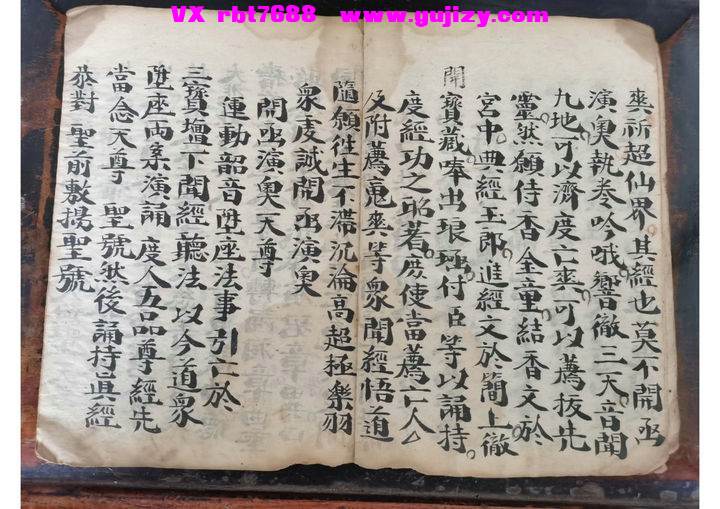 VX rbt7688 www.gujizy.com
爽祈超仙界其經也莫不開函
演奧執卷吟哦響徹三天音聞
九地可以濟度亡爽可以薦拔先
靈然願侍香金童結香文於
宮中典經玉郎進經文於簡上徹
開寶藏奉出琅函付臣等以誦持
度經功之昭著庶使當薦亡人厶
及附薦冤爽等衆聞經悟道
隨願徃生不滯沉淪高超極樂羽
衆虔誠開函演奧
開函演奧天尊
運動韶音陞座法事引亡於
三寶壇下聞經聽法以今道衆
陞座兩案演誦度人五品尊經先
當念天尊聖號然後誦持眞經
恭對聖前敷揚聖號